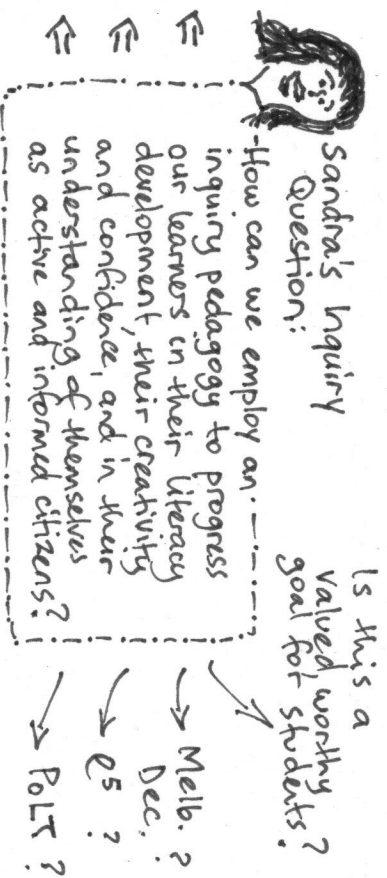 Sandra's Inquiry
Question:
-How can we employ an
inquiry pedagogy to progress
our learners in their literacy
development, their creativity
and confidence, and in their
understanding of themselves
as active and informed citizens?
Is this a
valued worthy
goal for students?
Melb. ?
Dec.
e5 ?
PoLT ?